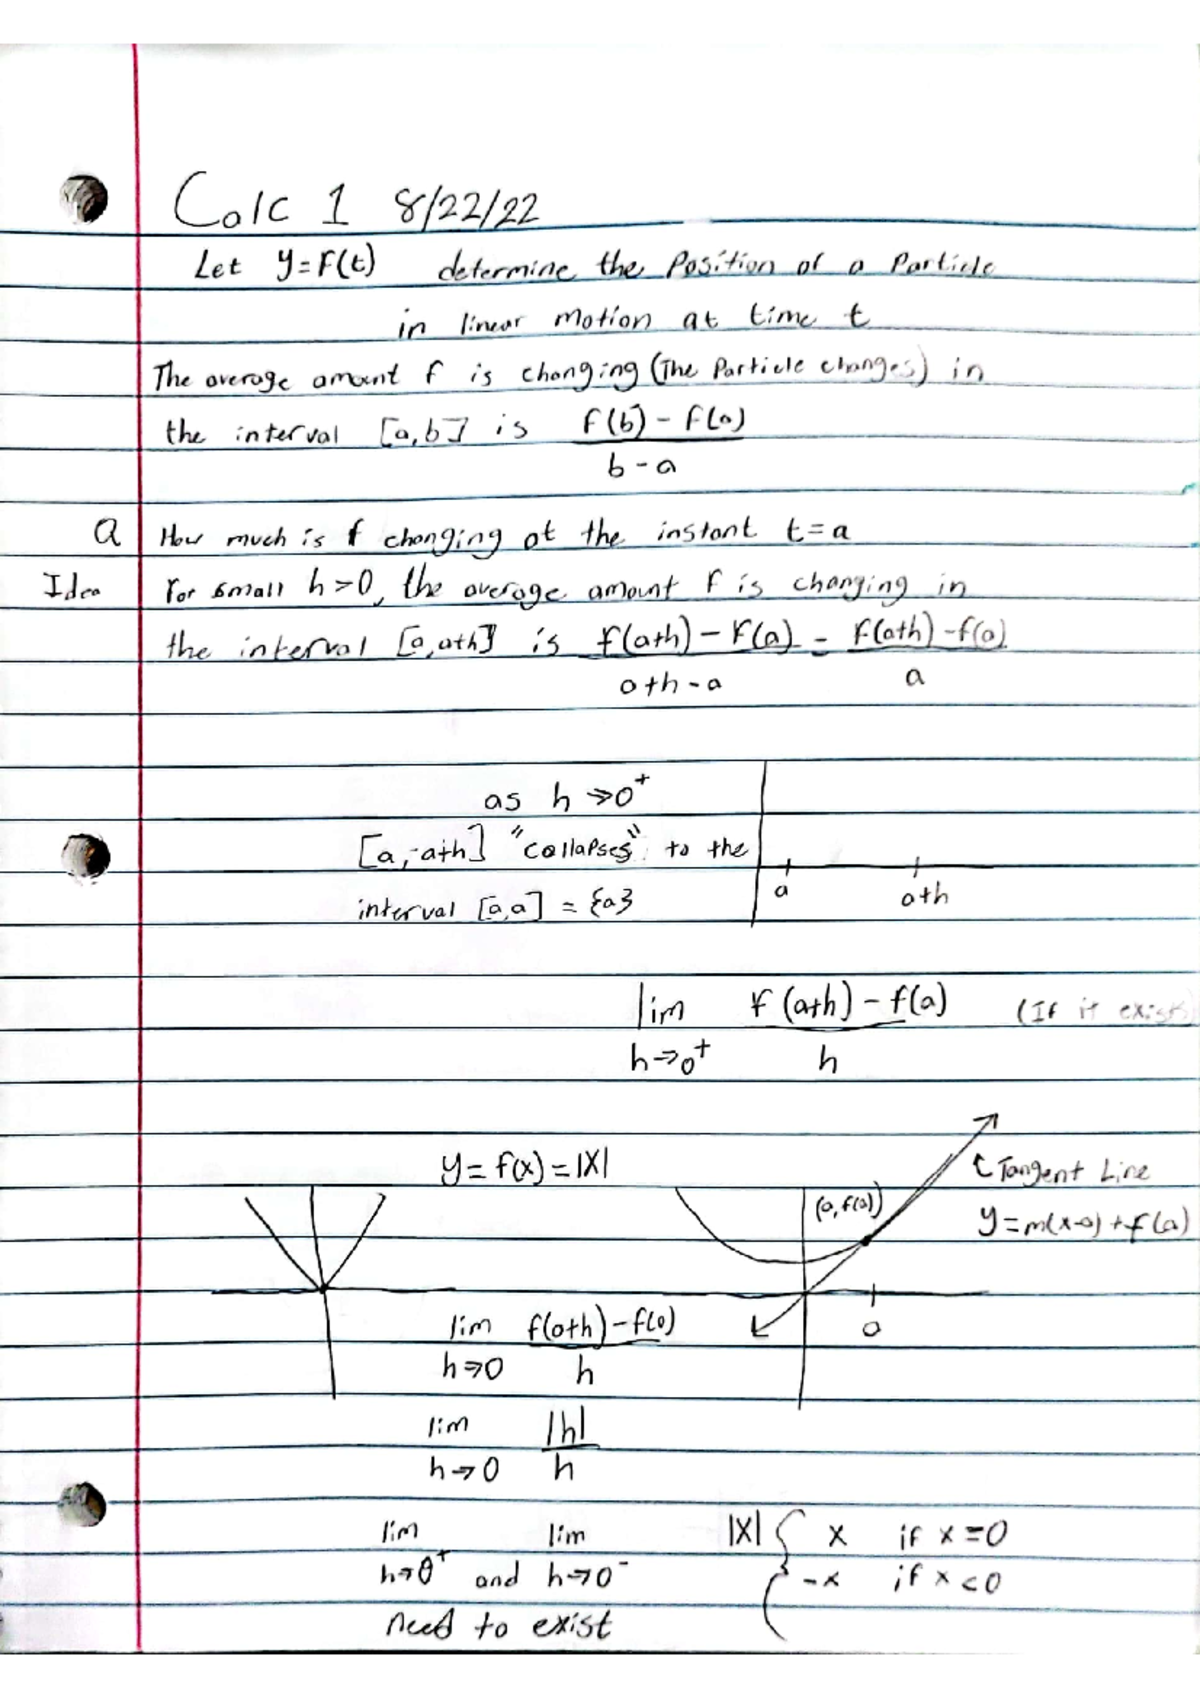 Calc 1 8/22/22
Let y=f(t) determine the Position of a Particle
in linear motion at time t
The average amount f is changing (The Particle changes) in
the interval [a,b] is f(b) - f(a)
b - a
Q How much is f changing at the instant t=a
Idea For small h>0, the average amount f is changing in
the interval [a,a+h] is f(a+h) - f(a) = f(a+h) - f(a)
a+h-a a
as h→0⁺
[a,a+h] "collapses" to the
a a+h
interval [a,a] = {a}
lim f(a+h) - f(a) (If it exists)
h→0⁺ h
y= f(x) = |X|
Tangent Line
(a,f(a)) y=m(x-a)+f(a)
lim f(a+h)-f(a) a
h→0 h
lim |h|
h→0 h
lim lim |X| { x if x=0
h→0⁺ and h→0⁻ -x if x<0
need to exist